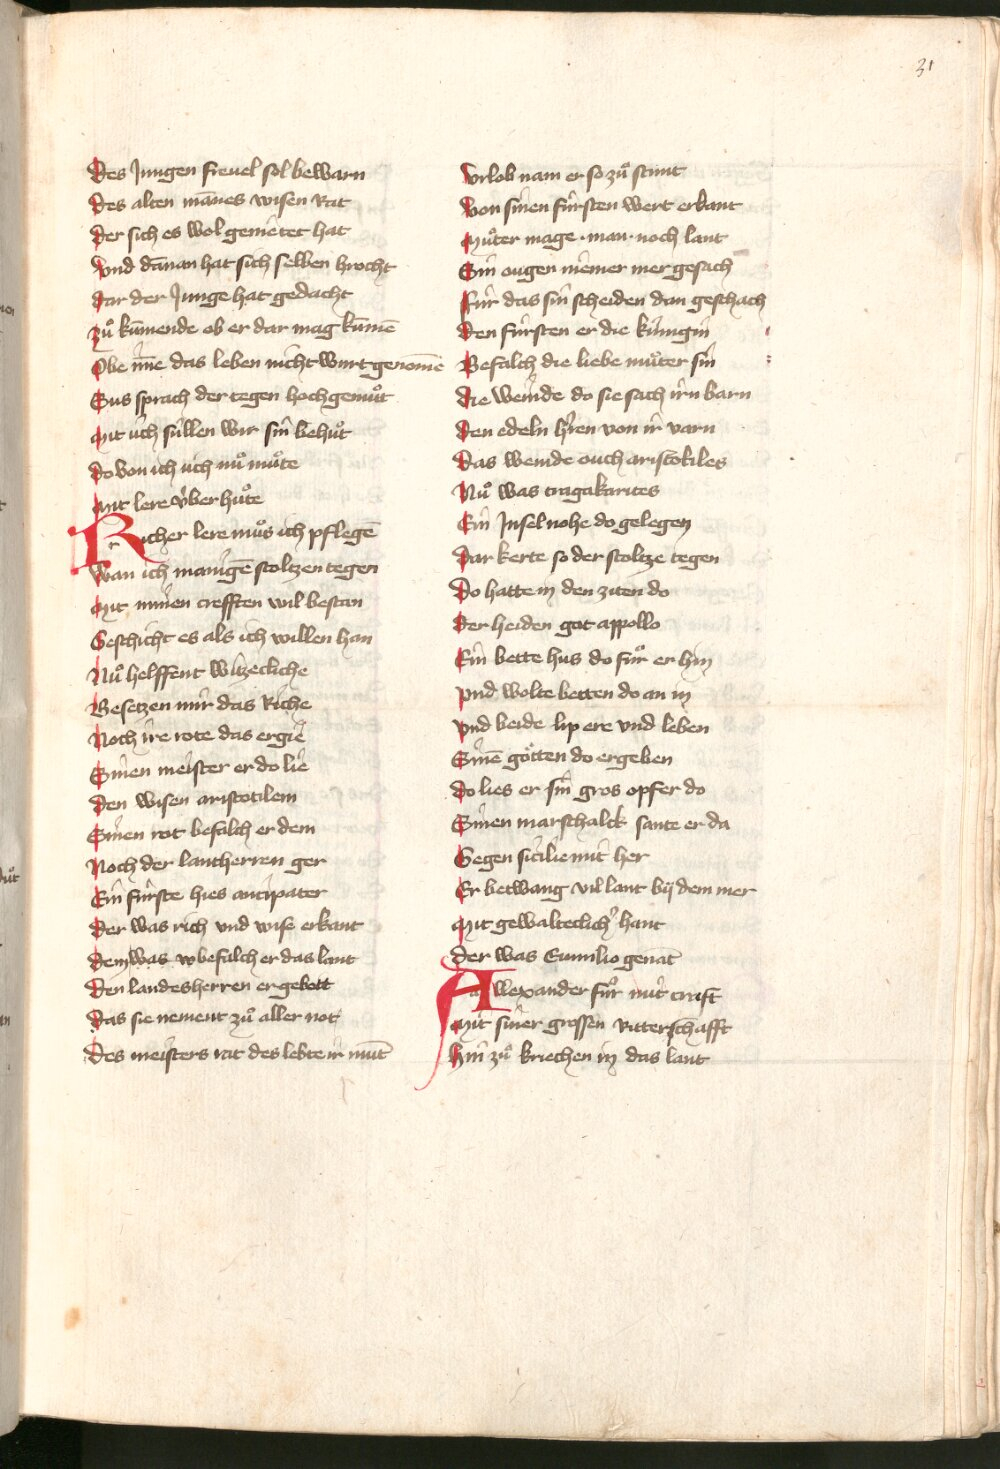 31
Des Jungen freuel sol bewarn
Des alten mānes wisen Rat
Der sich es wol gemetet hat
Vnd dānan hat sich selben brocht
Dar der Junge hat gedacht
Zuͦ kūmende ob er dar mag kūmē
Obe īme das leben nicht wurt genomē
Sus sprach der tegen hochgemuͦt
Mit üch süllen wir sin behuͦt
Do von ich üch nuͦ muͦte
Mit lere v́ber huͦte
Richer lere muͦs ich pflegē
Wan ich manigē stoltzen tegen
Mit minen crefften wil bestan
Geschicht es als ich willen han
Nuͦ helffent witzecliche
Besetzen mir das Riche
Noch ire rote das ergie
Sinen meister er do lie
Den wisen aristotilem
Sinen rot befalch er dem
Noch der lantherren ger
Ein fürste hies antipater
Der was rich vnd wise erkant
Dem befalch er das lant
Den landesherren er gebott
Das sie nement zuͦ aller not
Des meisters rat des lebte ir muͤt
Vrlob nam er so zuͦ stunt
Von sinen fürsten wert erkant
Muͦter mage · man · noch lant
Sin ougen niemer mer gesach
Für das sin scheiden dan geschach
Den fürsten er die künigin
Befalch die liebe muͦter sin
Die weinde do sie sach irn barn
Den edeln h'ren von ir varn
Das weinde ouch aristotiles
Nuͦ was tragakantes
Ein Insel nohe do gelegen
Dar kerte so der stoltze tegen
Do hatte in den ziten do
Der heiden got appollo
Ein bette hus do fuͦr er hin
Vnd wolte betten do an in
Vnd beide lip ere vnd leben
Sinē götten do ergeben
Do lies er sin gros opfer do
Sinen marschalck sante er da
Gegen sicilie mit her
Er betwang vil lant bij dem mer
Mit gewalteclich' hant
Der was Eumilio genāt
Allexander fuͦr mit craft
Mit siner grossen Ritterschafft
Hin zuͦ kriechen in das lant